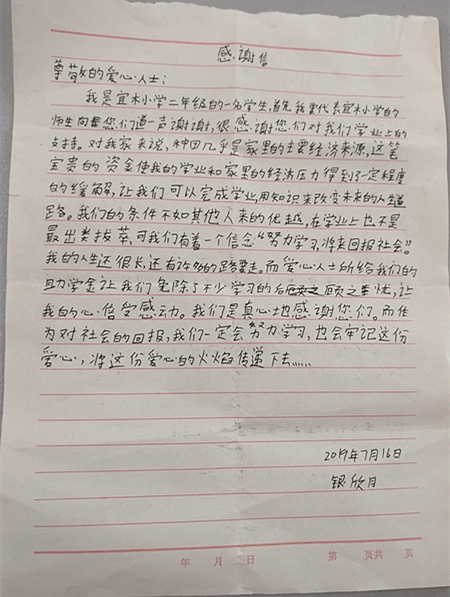 感谢信
尊敬的爱心人士：
我是宜木小学二年级的一名学生，首先我要代表宜木小学的
师生向您们道一声谢谢，很感谢您们对我们学业上的
支持。对我家来说，种田几乎是家里的主要经济来源，这笔
宝贵的资金使我的学业和家里的经济压力得到了一定程度
的缓解，让我们可以完成学业，用知识来改变未来的人生道
路。我们的条件不如其他人来的优越，在学业上也不是
最出类拔萃，可我们有着一个信念“努力学习，将来回报社会”。
我的人生还很长，还有许多的路要走。而爱心人士所给我们的
助学金让我们免除了不少学习的后顾之忧，让
我的心倍受感动。我们是真心地感谢您们。而作
为对社会的回报，我们一定会努力学习，也会牢记这份
爱心，将这份爱心的火焰传递下去……
2019年7月16日
银欣月
年 月 日 第 页共 页